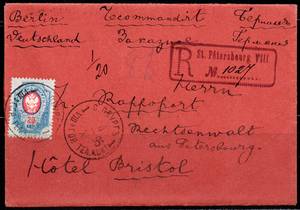 Berlin Recommandirt Германія
Deutschland Заказное Германія
R St. Pétersbourg VIII
№ 1027
1/20
Herrn
Th. Rappoport
Rechtsanwalt
aus Petersbourg.
Hôtel Bristol